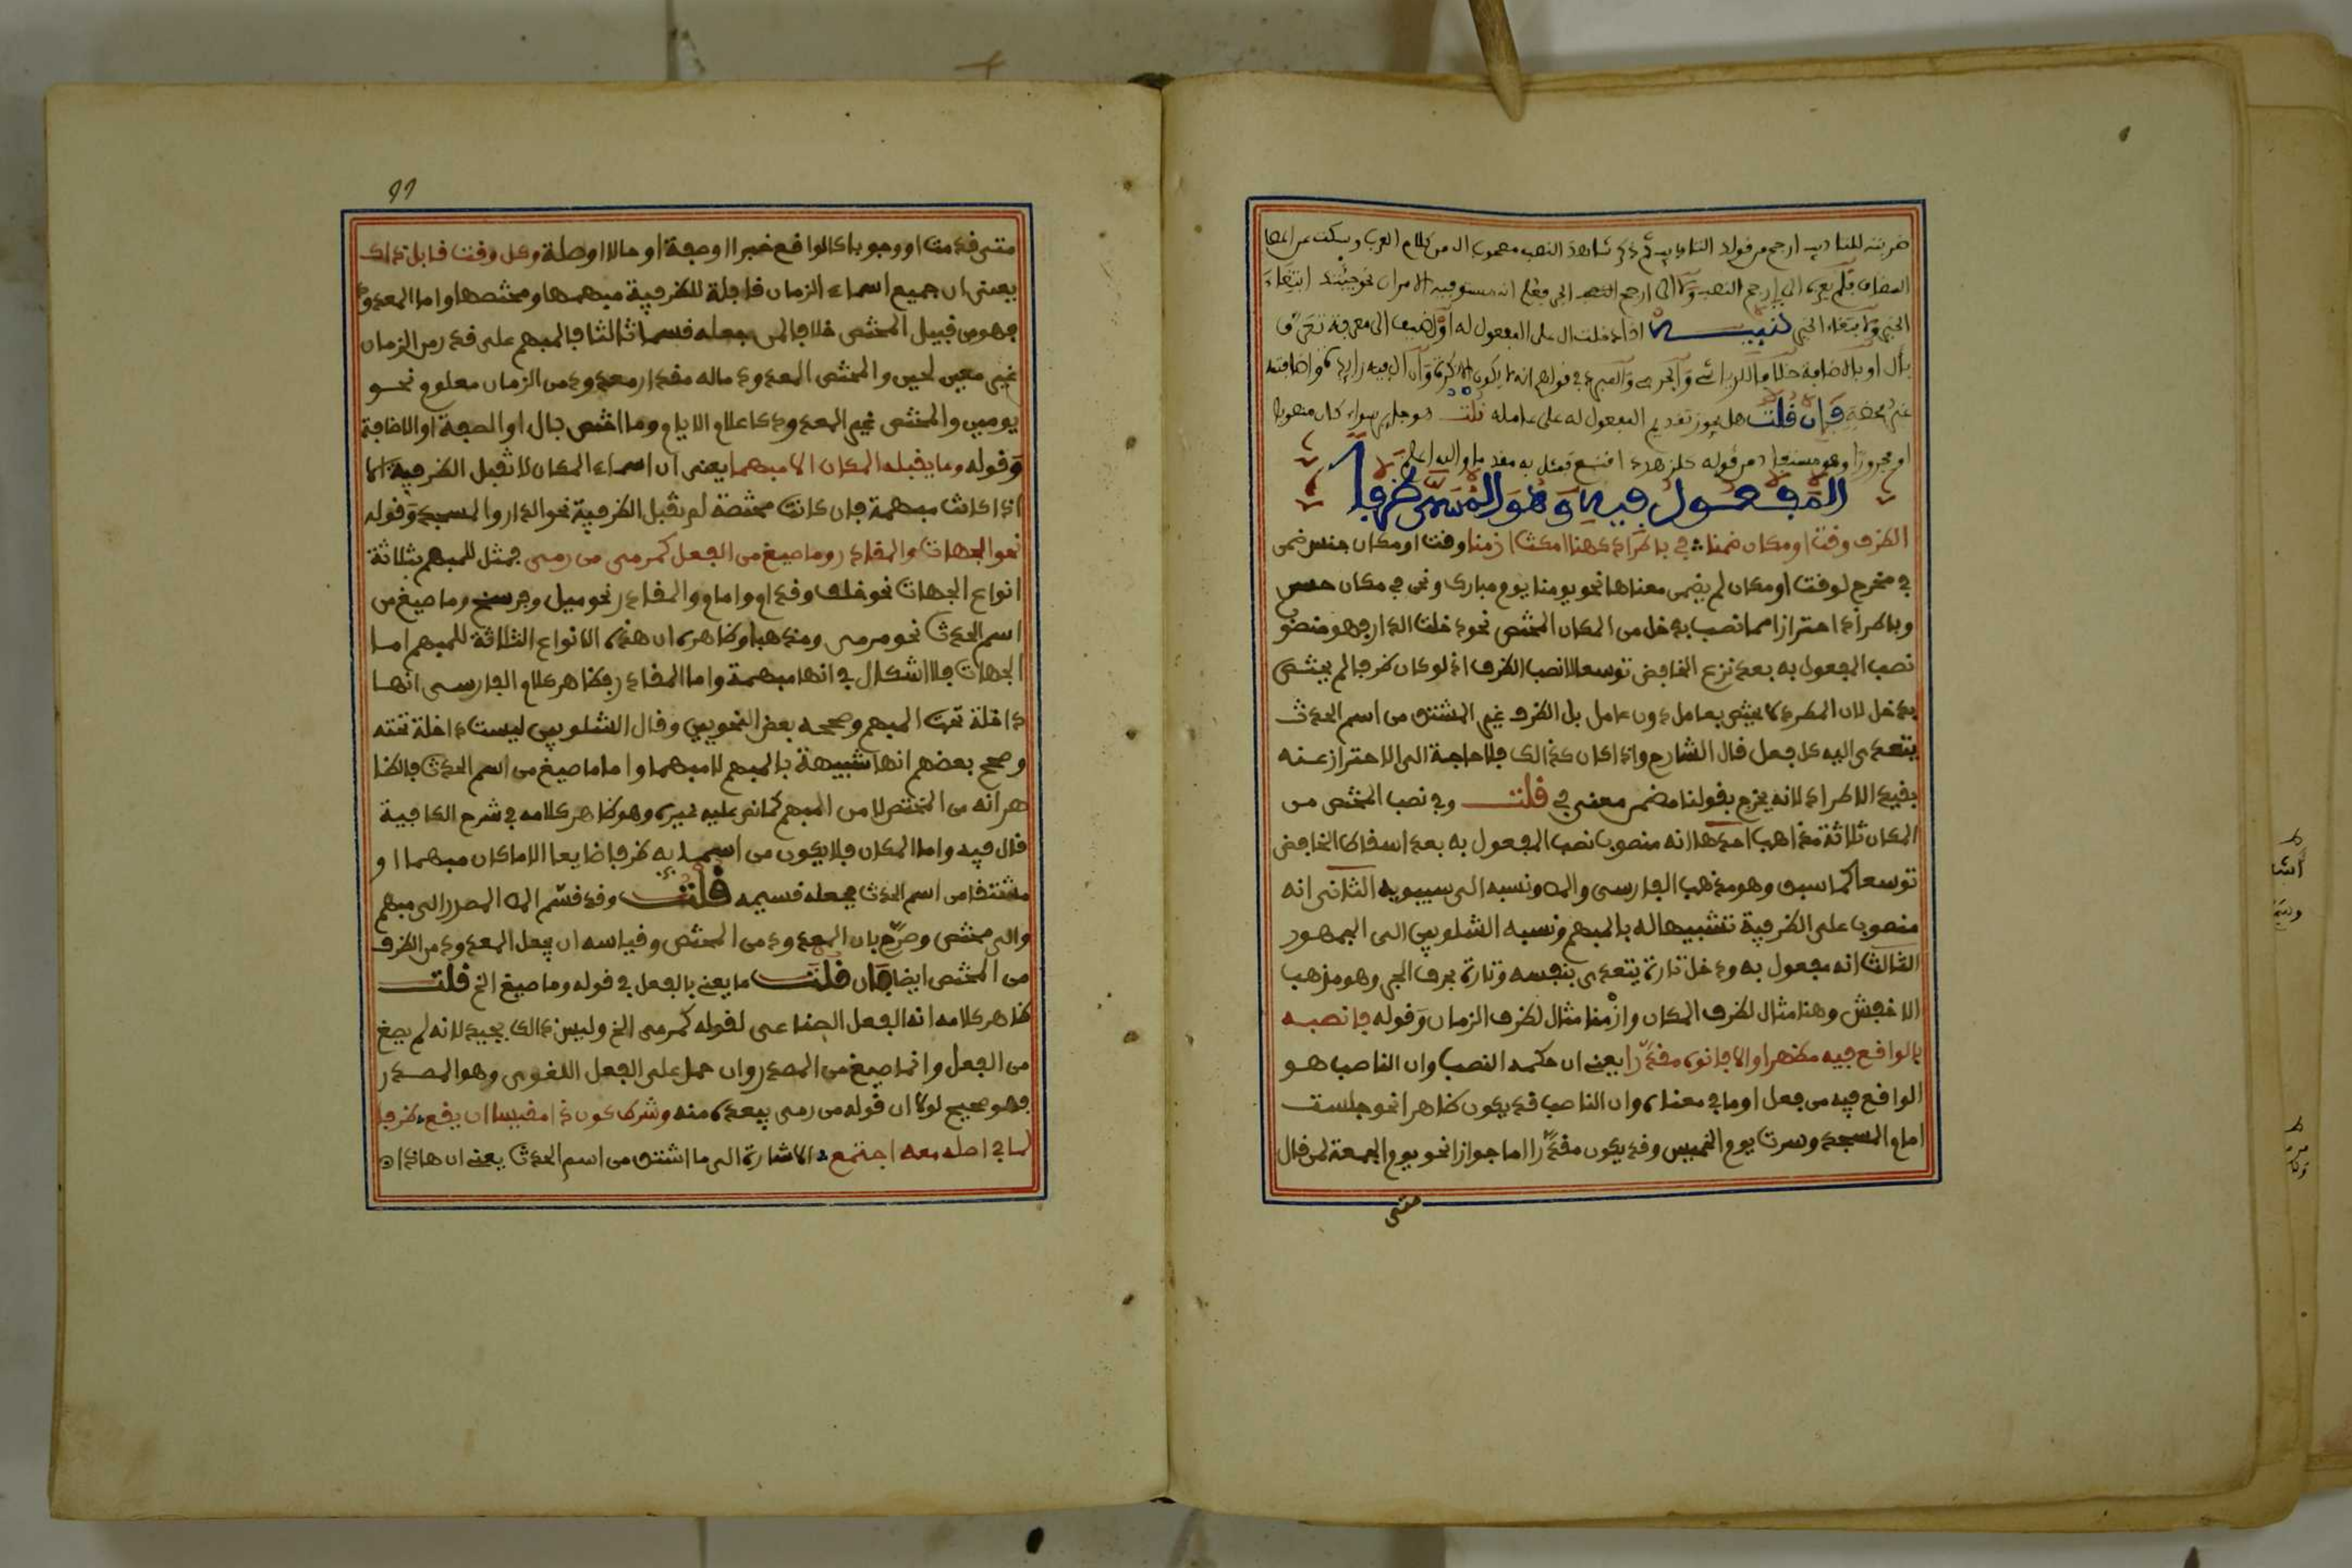 ضربته للتاديب ارجح من قولك التاديب ثم ذكر شاهد النصب مصحوب ال من كلام العرب وسكت عن
المضاف فلم يعزه الى ارجح النصب ولا الى ارجح الجر فعلم انه مستو فيه الامران نحو جئتك ابتغاء
الخير ولابتغاء الخير تنبيه اذا دخلت ال على المفعول له او اضيف الى معرفة تعرف
بأل او بالاضافة خلافا للرياشي والجرمي والمبرد في قولهم انه لا يكون الا نكرة وان ال فيه زايدة واضافته
غير محضة فإن قلت هل يجوز تقديم المفعول له على عامله قلت هو جايز سواء كان منصوبا
او مجرورا وهو مستفاد من قوله كلزهد ذا قنع فمثل به مقدما والله اعلم
المفعول فيه وهو المسمى ظرفا
الظرف وقت او مكان ضمنا في باطراد كهنا امكث ازمنا وقت او مكان جنس ضمن
في مخرج لوقت او مكان لم يضمن معناها نحو يومنا يوم مبارك ونحن في مكان حسن
وباطراد احترازا مما نصب بدخل من المكان المختص نحو دخلت الدار فهو منصوب
نصب المفعول به بعد نزع الخافض توسعا لا نصب الظرف اذ لو كان ظرفا لم يختص
بدخل لان المطرد لا يختص بعامل دون عامل بل الظرف غير المشتق من اسم الحدث
يتعدى اليه كل فعل قال الشارح واذا كان كذالك فلا حاجة الى الاحتراز عنه
بقيد الاطراد لانه يخرج بقولنا مضمن معنى في قلت وفي نصب المختص من
المكان ثلاثة مذاهب احدها انه منصوب نصب المفعول به بعد اسقاط الخافض
توسعا كما سبق وهو مذهب الفارسي والمص ونسبه الى سيبويه الثاني انه
منصوب على الظرفية تشبيها له بالمبهم ونسبه الشلوبين الى الجمهور
الثالث انه مفعول به ودخل تارة يتعدى بنفسه وتارة بحرف الجر وهو مذهب
الاخفش وهنا مثال لظرف المكان وازمنا مثال لظرف الزمان وقوله فانصبه
بالواقع فيه مظهرا والا فانوه مقدرا يعني ان حكمه النصب وان الناصب هو
الواقع فيه من فعل او ما في معناه وان الناصب قد يكون ظاهرا نحو جلست
امام المسجد وسرت يوم الخميس وقد يكون مقدرا اما جوازا نحو يوم الجمعة لمن قال
متى
99
متى قدمت او وجوبا كالواقع خبرا او صفة او حالا او صلة وكل وقت قابل ذاك
يعني ان جميع اسماء الزمان قابلة للظرفية مبهمها ومختصها واما المعدود
فهو من قبيل المختص خلافا لمن جعله قسما ثالثا فالمبهم على قدر من الزمان
غير معين لحين والمختص المعدود ماله مقدار معدود من الزمان معلوم نحو
يومين والمختص غير المعدود كاعلام الايام وما اختص بال او الصفة او الاضافة
وقوله وما يقبله المكان الا مبهما يعني ان اسماء المكان لا تقبل الظرفية الا
اذا كانت مبهمة فان كانت مختصة لم تقبل الظرفية نحو الدار والمسجد وقوله
نحو الجهات والمقادير وما صيغ من الفعل كمرمى من رمى فمثل للمبهم بثلاثة
انواع الجهات نحو خلف وقدام وامام والمقادير نحو ميل وفرسخ وما صيغ من
اسم الحدث نحو مرمى ومذهب وظاهره ان هذه الانواع الثلاثة للمبهم اما
الجهات فلا اشكال في انها مبهمة واما المقادير فظاهر كلام الفارسي انها
داخلة تحت المبهم وصححه بعض النحويين وقال الشلوبين ليست داخلة تحته
وصحح بعضهم انها شبيهة بالمبهم لا مبهما واما ما صيغ من اسم الحدث فالظا
هر انه من المختص لا من المبهم كما نص عليه غيره وهو ظاهر كلامه في شرح الكافية
قال فيه واما المكان فلا يكون من اسمايه ظرفا صناعيا الا ما كان مبهما او
مشتقا من اسم الحدث فجعله قسيمه قلت وقد قسم المص المصدر الى مبهم
والى مختص وصرح بان المعدود من المختص وقياسه ان يجعل المعدود من الظرف
من المختص ايضا فان قلت ما يعني بالفعل في قوله وما صيغ الخ قلت
ظاهر كلامه انه الفعل الصناعي لقوله كمرمى الخ وليس ذالك بجيد لانه لم يصغ
من الفعل وانما صيغ من المصدر وان حمل على الفعل اللغوي وهو المصدر
فهو صحيح لولا ان قوله من رمى يبعده منه وشرط كون ذا مقيسا ان يقع ظرفا
لما في اصله معه اجتمع الاشارة الى ما اشتق من اسم الحدث يعني ان هاذا